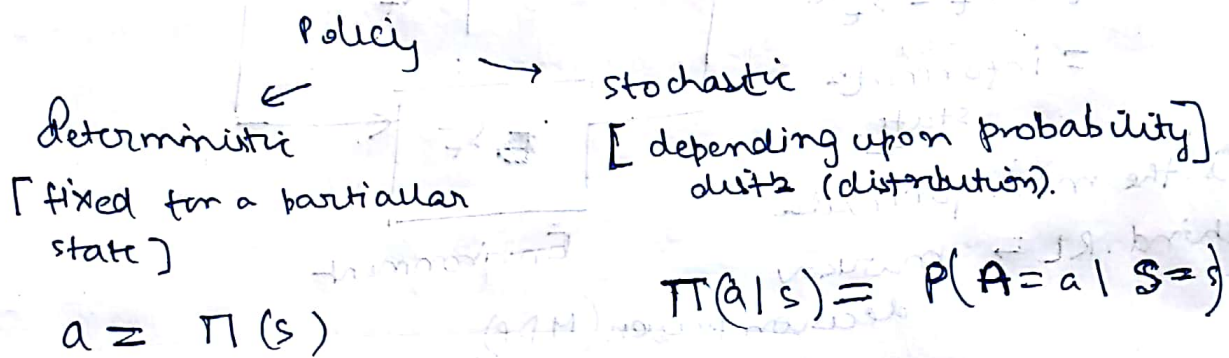 Policy
Deterministic
[fixed for a particular
state]
a = π(s)
stochastic
[depending upon probability]
(distribution).
π(a|s) = P(A=a | S=s)